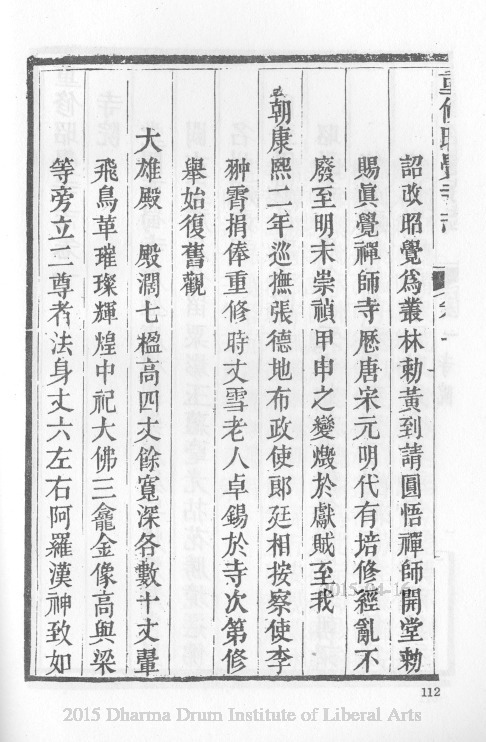 重修昭覺寺志
詔改昭覺爲叢林勅黃到請圓悟禪師開堂勅
賜眞覺禪師寺歷唐宋元明代有培修經亂不
廢至明末崇禎甲申之變燬於獻賊至我
朝康熙二年巡撫張德地布政使郎廷相按察使李
翀霄捐俸重修時丈雪老人卓錫於寺次第修
舉始復舊觀
大雄殿 殿濶七楹高四丈餘寬深各數十丈翬
飛鳥革璀璨輝煌中祀大佛三龕金像高與梁
等旁立二尊者法身丈六左右阿羅漢神致如
2015-04-16
112
2015 Dharma Drum Institute of Liberal Arts